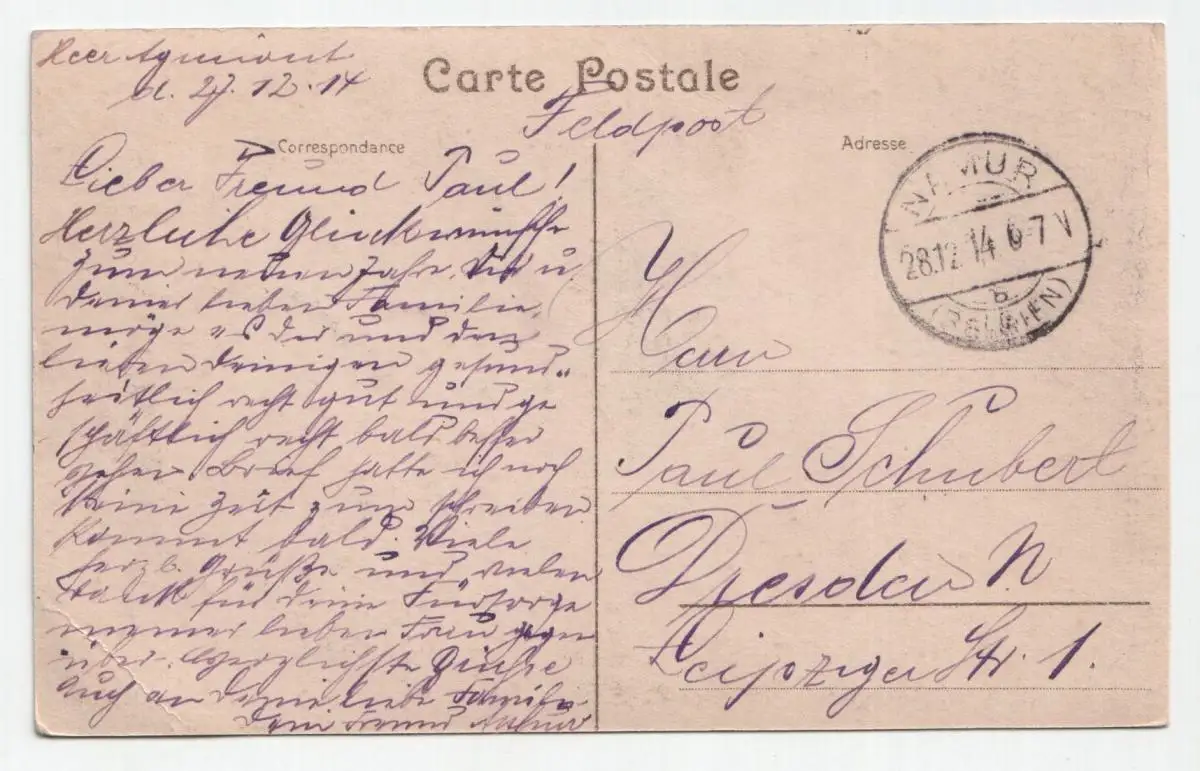 d. 27.12.14
Carte Postale
Feldpost
Correspondance
Adresse
Lieber Freund Paul!
Herzliche Glückwünsche
zum neuen Jahre. Dir u.
deiner lieben Familie,
möge es dir und den
lieben deinigen gesund„
heitlich recht gut und ge
schäftlich recht bald besser
gehen. Brief hatte ich noch
keine Zeit zum schreiben
kommt bald. Viele
herzl. Grüße und vielen
Dank für deine Fürsorge
meiner lieben Frau gegen
über. Herzlichste Grüße
auch an deine liebe Familie
dein Freund Arthur
NAMUR
28.12.14. 6-7 V
b
(BELGIEN)
Herrn
Paul Schubert
Dresden N.
Leipziger Str. 1.